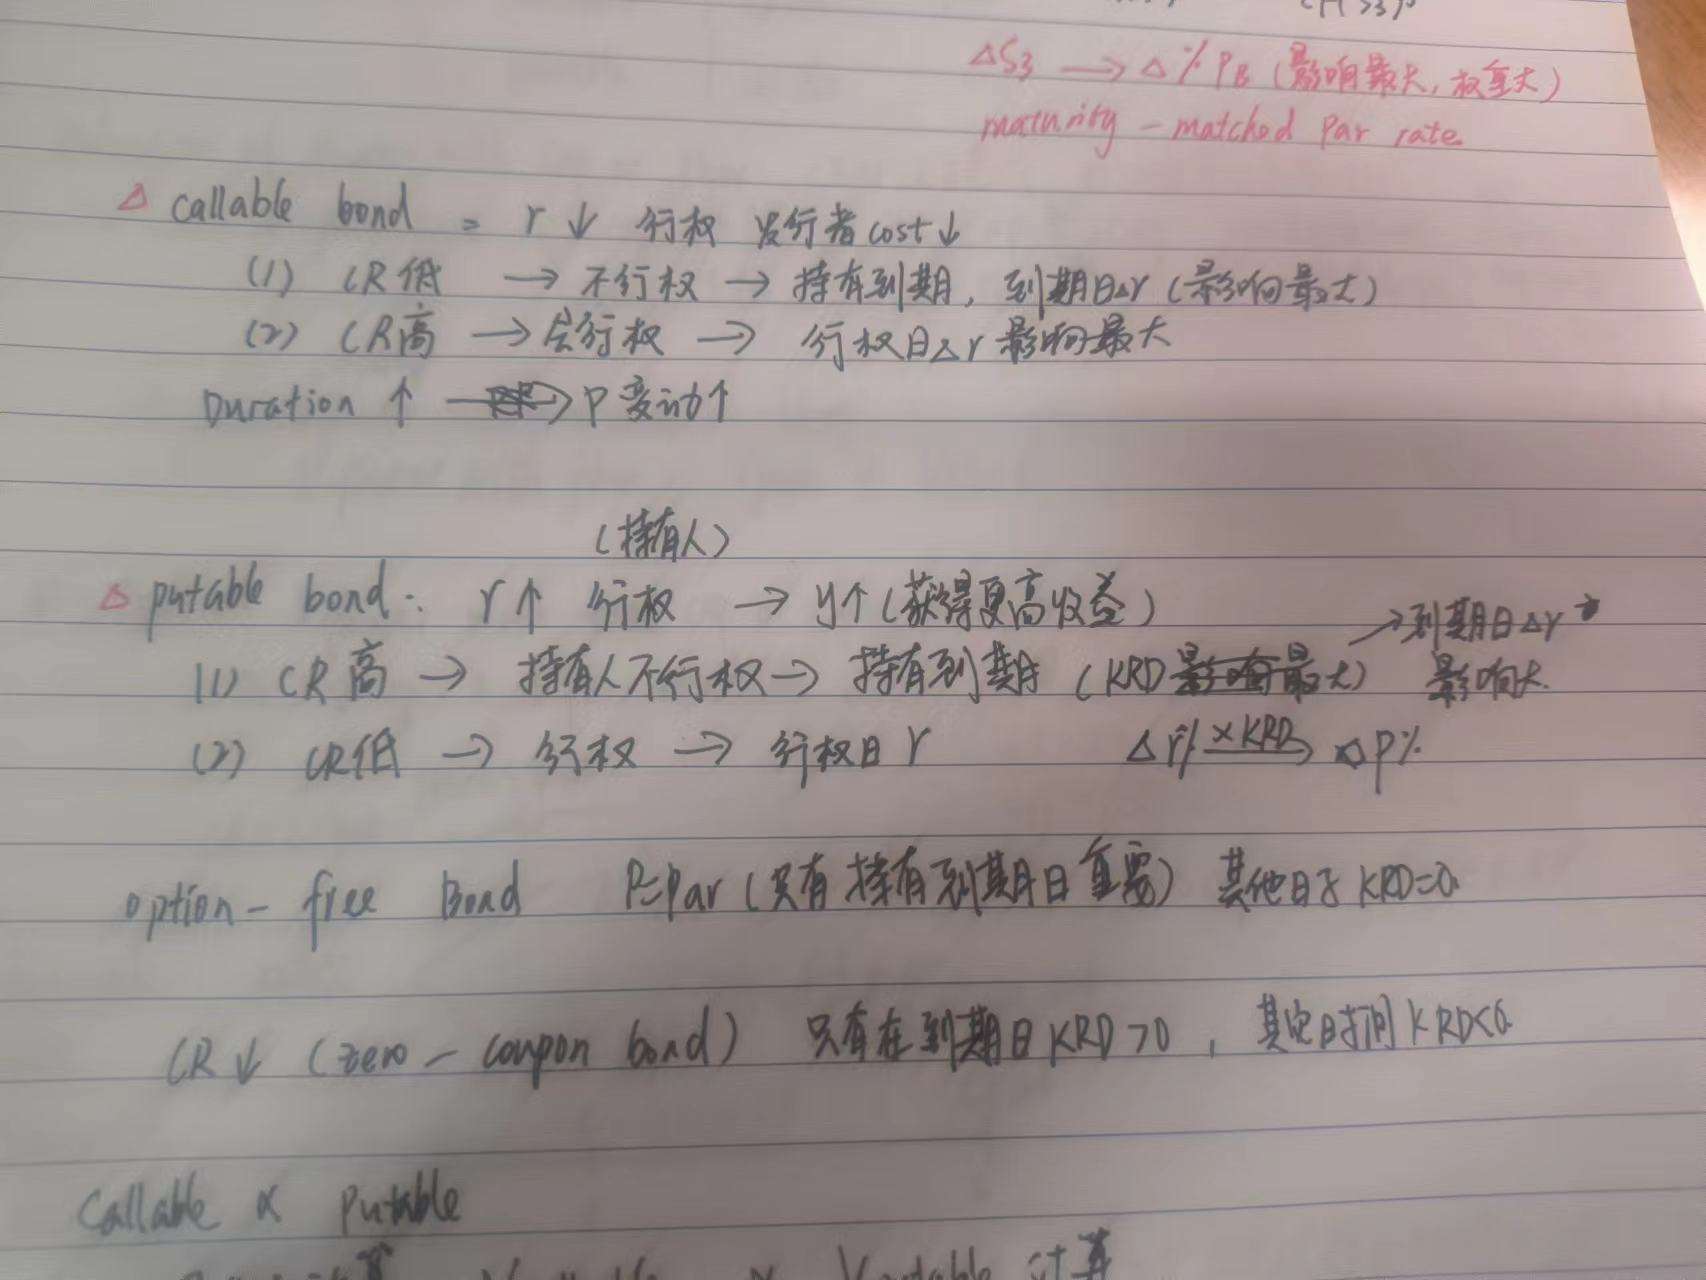 ΔS3 → Δ%PB (影响最大, 权重大)
maturity - matched par rate
Δ callable bond = r ↓ 行权 发行者cost↓
(1) CR低 → 不行权 → 持有到期, 到期日Δr (影响最大)
(2) CR高 → 会行权 → 行权日Δr影响最大
Duration ↑ → P变动↑
(持有人)
Δ putable bond: r↑ 行权 → y↑ (获得更高收益)
→到期日Δr
(1) CR高 → 持有人不行权 → 持有到期 (KRD影响最大) 影响大
(2) CR低 → 行权 → 行权日 r Δr% ×KRD→ ΔP%
option-free Bond P=Par (只有持有到期日重要) 其他日子KRD=0
CR↓ (zero-coupon bond) 只有在到期日KRD>0, 其它时间KRD<0
Callable & Putable
计算